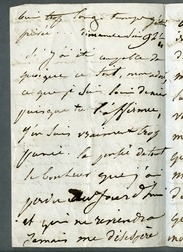 trop longtemps
privée. dimanche soir 9h
si j'ai été coupable de
quoique ce soit, mon ami,
ce que je suis loin de
puisque tu l'affirmes,
j'en suis vraiment trop
punie. la perte de tout
le bonheur que j'ai
perdu aujourd'hui
et qui ne reviendra
jamais me désespère